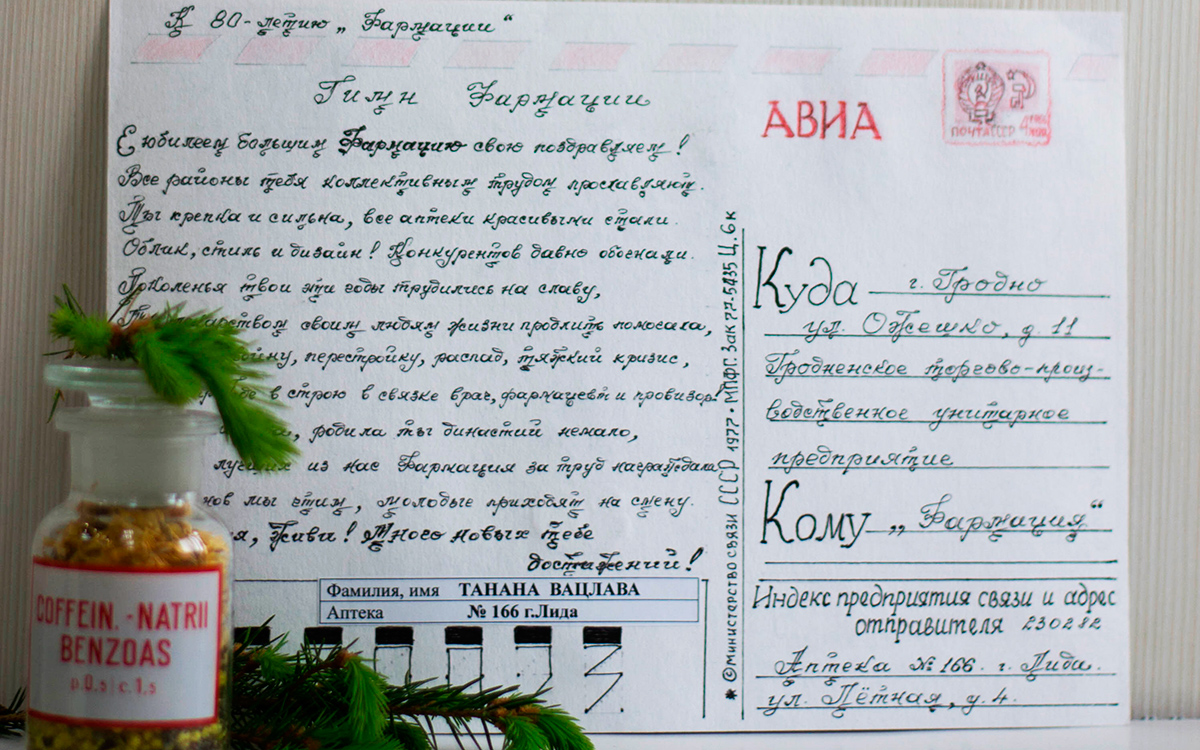 К 80-летию „Фармации“
Гимн Фармации
С юбилеем большим Фармацию свою поздравляем!
Все районы тебя коллективным трудом прославляют.
Ты крепка и сильна, все аптеки красивыми стали.
Облик, стиль и дизайн! Конкурентов давно обогнали.
Поколенья твои эти годы трудились на славу,
своим людям жизни продлить помогала,
перестройку, распад, тяжкий кризис,
в строю в связке врач, фармацевт и провизор!
родила ты династий немало,
лучших из нас Фармация за труд награждала
мы чтим, молодые приходят на смену.
живи! Много новых тебе
достижений!
Фамилия, имя ТАНАНА ВАЦЛАВА
Аптека № 166 г.Лида
АВИА
ПОЧТА СССР
© Министерство связи СССР 1977 • МПФГ. Зак 77-5435 Ц. 6 к
Куда г. Гродно
ул. Ожешко, д. 11
Гродненское торгово-произ-
водственное унитарное
предприятие
Кому „Фармация“
Индекс предприятия связи и адрес
отправителя 230282
Аптека № 166 г. Лида.
ул. Лётная, д. 4.
COFFEIN. -NATRII
BENZOAS
p.0,5 | c.1,5